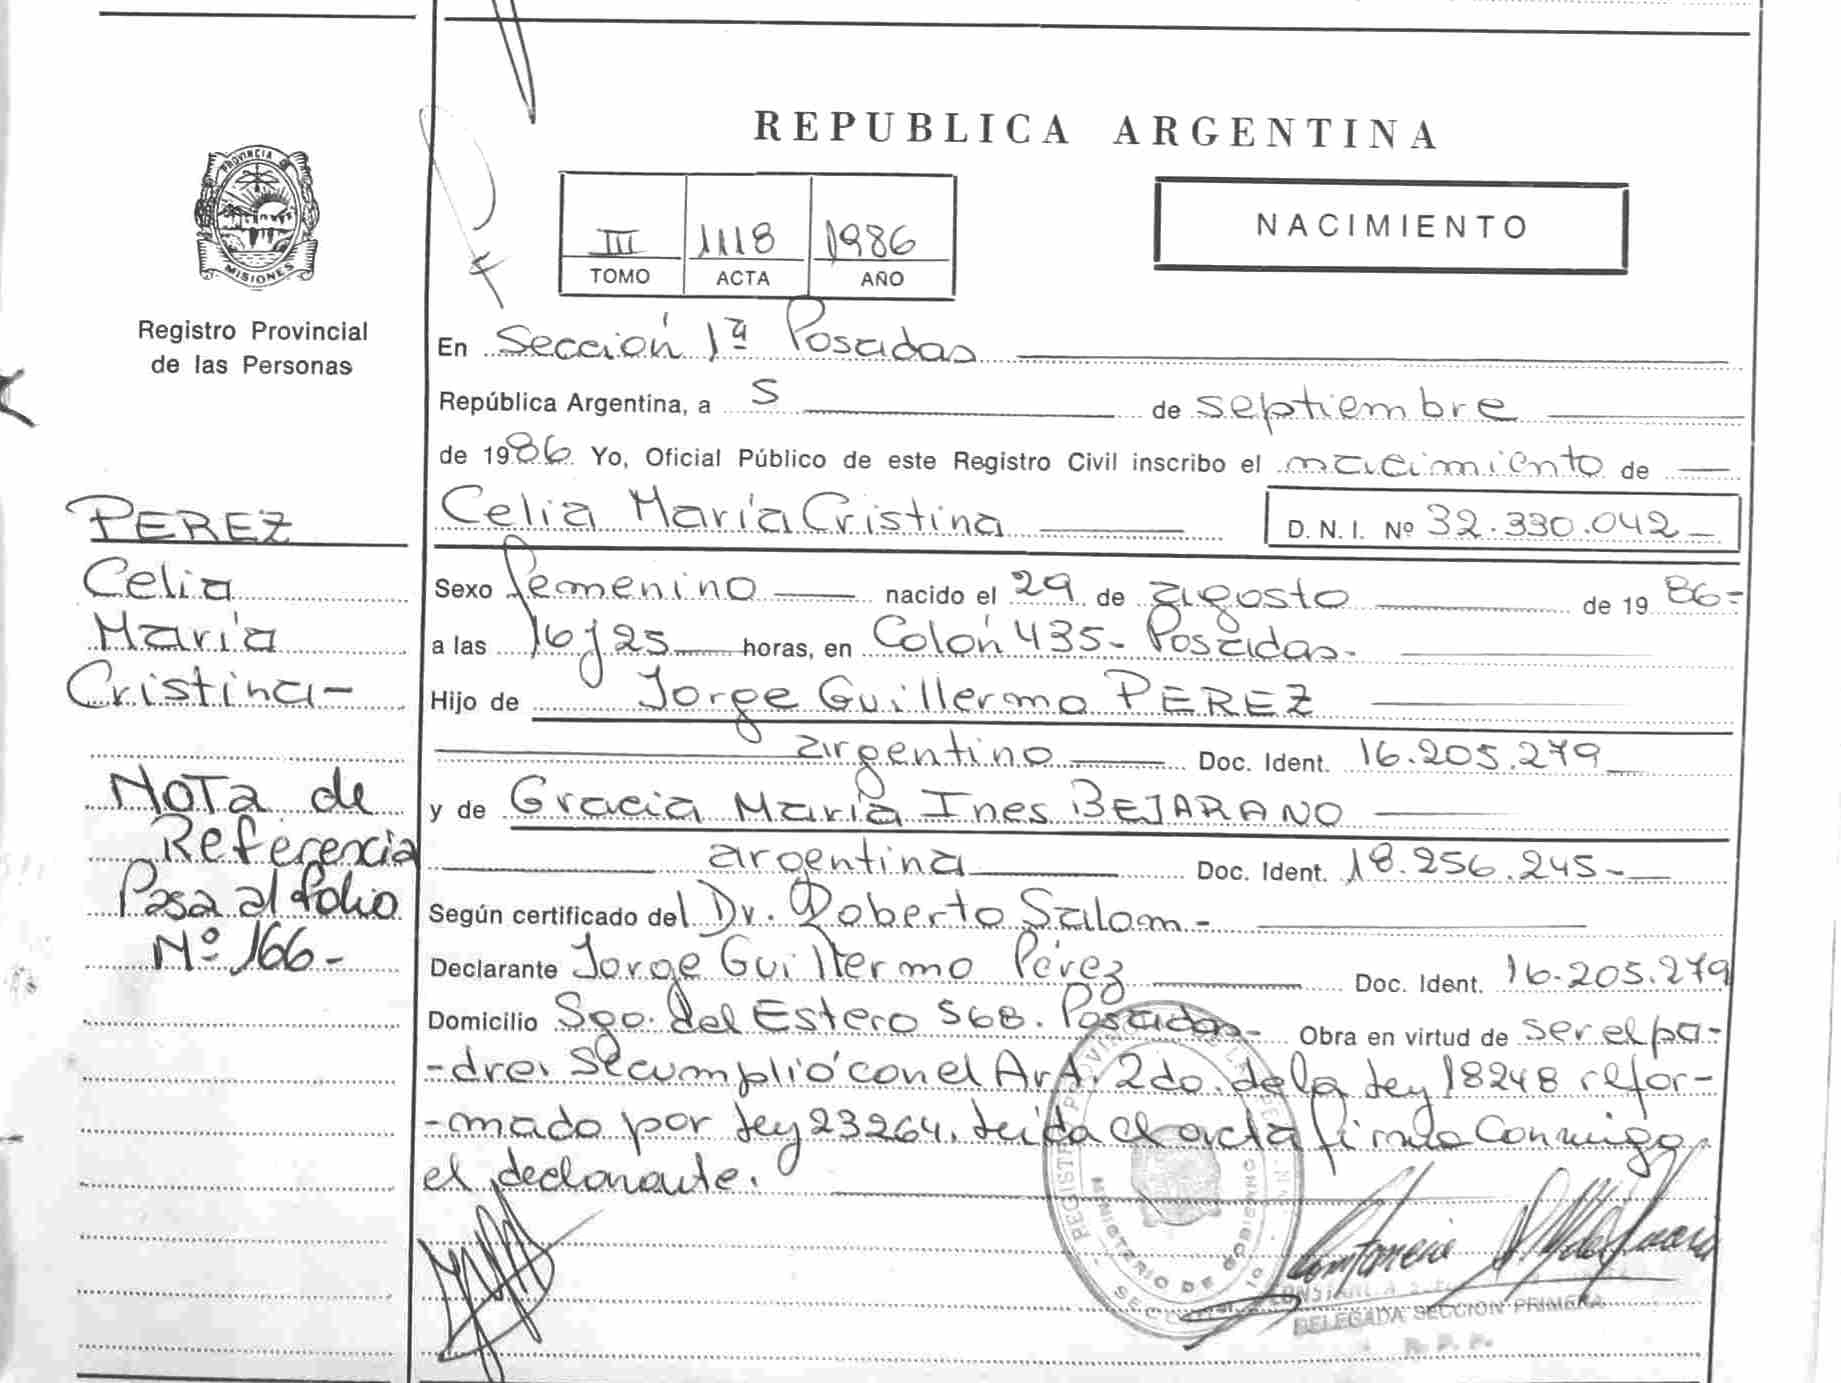 REPUBLICA ARGENTINA
NACIMIENTO
III 1118 1986
TOMO ACTA AÑO
PROVINCIA DE
MISIONES
Registro Provincial
de las Personas
PEREZ
Celia
María
Cristina-
NOTa de
Referencia
Pasa al folio
Nº 166-
En Sección 1ª Posadas
República Argentina, a 5 de septiembre
de 1986 Yo, Oficial Público de este Registro Civil inscribo el nacimiento de
Celia María Cristina D. N. I. Nº 32.330.042
Sexo femenino nacido el 29 de agosto de 1986-
a las 16 y 25 horas, en Colón 435- Posadas-
Hijo de Jorge Guillermo PEREZ
argentino Doc. Ident. 16.205.279
y de Gracia María Ines BEJARANO
argentina Doc. Ident. 18.256.245-
Según certificado del Dr. Roberto Salom-
Declarante Jorge Guillermo Pérez Doc. Ident. 16.205.279
Domicilio Sgo. del Estero 568. Posadas- Obra en virtud de ser el pa-
-dre. Se cumplió con el Art. 2do. de la Ley 18248 refor-
-mado por Ley 23264. Leída el acta firma conmigo
el declarante.
REGISTRO PROVINCIAL DE LAS PERSONAS
MINISTERIO DE GOBIERNO
DELEGADA SECCION PRIMERA
R. P. P.